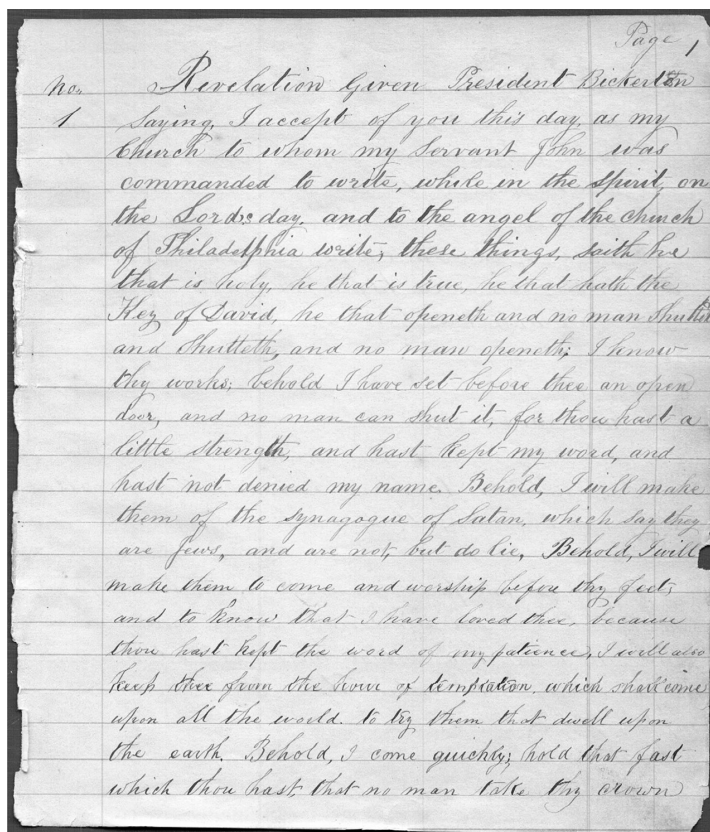 Page 1
No. Revelation Given President Bickerton
1 Saying, I accept of you this day, as my
Church to whom my Servant John was
commanded to write, while in the spirit, on
the Lord's day, and to the angel of the church
of Philadelphia write; these things, saith he
that is, holy, he that is true, he that hath the
Key of David, he that openeth and no man shutteth
and shutteth, and no man openeth; I know
thy works; behold I have set before thee an open
door, and no man can shut it, for thou hast a
little strength, and hast kept my word, and
hast not denied my name. Behold, I will make
them of the synagogue of Satan, which say they
are Jews, and are not, but do lie, Behold, I will
make them to come and worship before thy feet;
and to know that I have loved thee, because
thou hast kept the word of my patience, I will also
keep thee from the hour of temptation, which shall come
upon all the world. to try them that dwell upon
the earth. Behold, I come quickly; hold that fast
which thou hast, that no man take thy crown